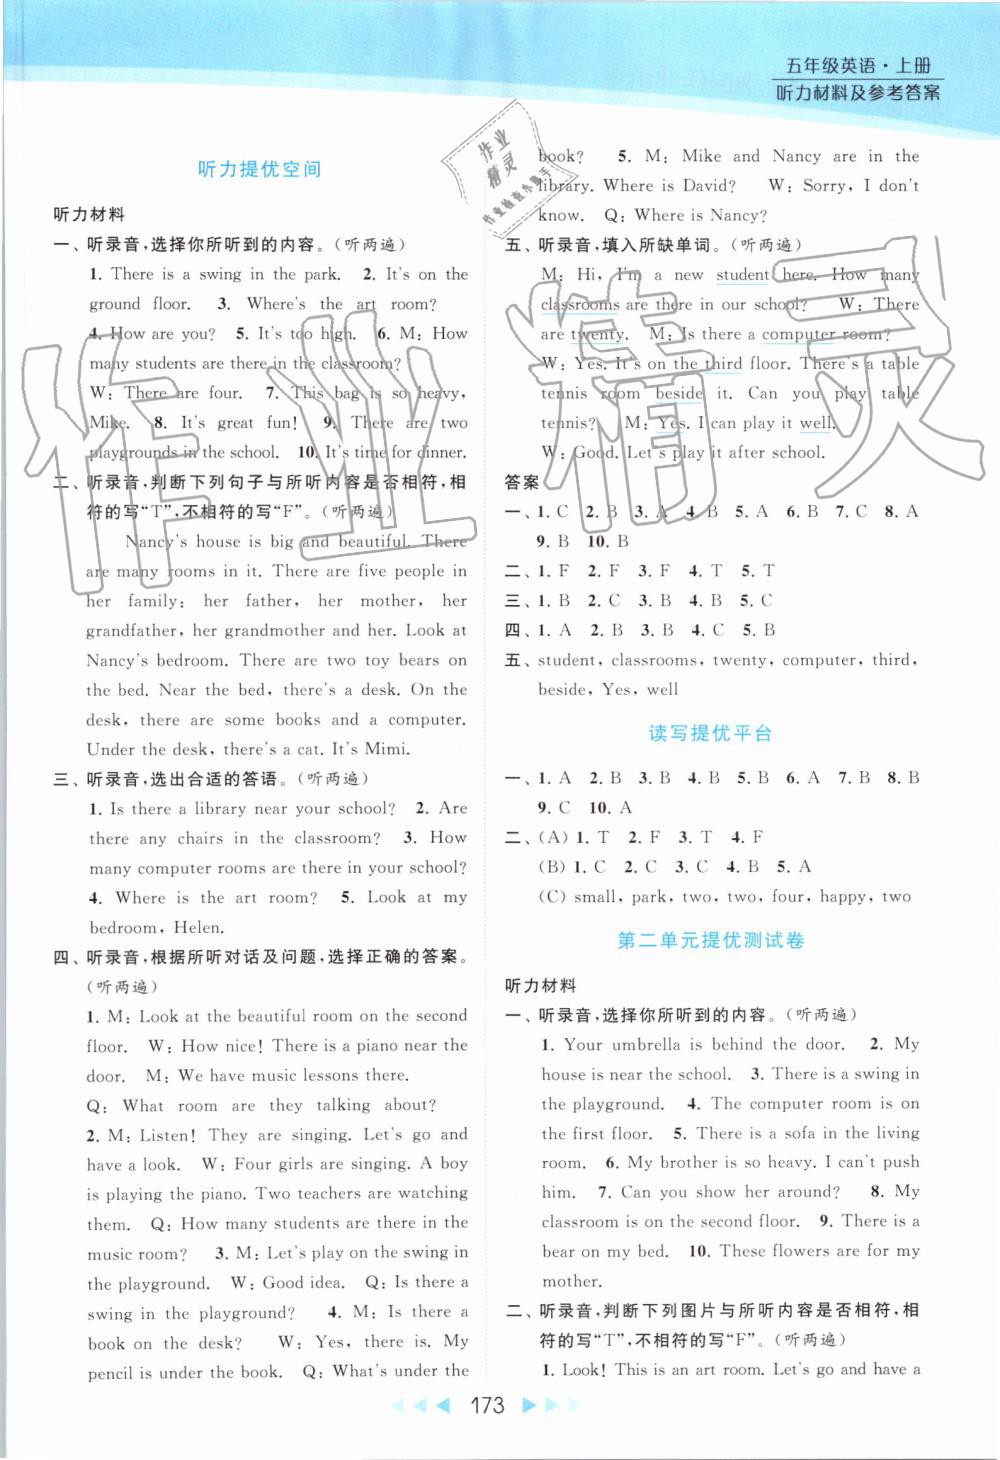 五年级英语·上册
听力材料及参考答案
听力提优空间
听力材料
一、听录音,选择你所听到的内容。(听两遍)
1. There is a swing in the park. 2. It's on the
ground floor. 3. Where's the art room?
4. How are you? 5. It's too high. 6. M: How
many students are there in the classroom?
W: There are four. 7. This bag is so heavy,
Mike. 8. It's great fun! 9. There are two
playgrounds in the school. 10. It's time for dinner.
二、听录音,判断下列句子与所听内容是否相符,相
符的写“T”,不相符的写“F”。(听两遍)
Nancy's house is big and beautiful. There
are many rooms in it. There are five people in
her family: her father, her mother, her
grandfather, her grandmother and her. Look at
Nancy's bedroom. There are two toy bears on
the bed. Near the bed, there's a desk. On the
desk, there are some books and a computer.
Under the desk, there's a cat. It's Mimi.
三、听录音,选出合适的答语。(听两遍)
1. Is there a library near your school? 2. Are
there any chairs in the classroom? 3. How
many computer rooms are there in your school?
4. Where is the art room? 5. Look at my
bedroom, Helen.
四、听录音,根据所听对话及问题,选择正确的答案。
(听两遍)
1. M: Look at the beautiful room on the second
floor. W: How nice! There is a piano near the
door. M: We have music lessons there.
Q: What room are they talking about?
2. M: Listen! They are singing. Let's go and
have a look. W: Four girls are singing. A boy
is playing the piano. Two teachers are watching
them. Q: How many students are there in the
music room? 3. M: Let's play on the swing in
the playground. W: Good idea. Q: Is there a
swing in the playground? 4. M: Is there a
book on the desk? W: Yes, there is. My
pencil is under the book. Q: What's under the
book? 5. M: Mike and Nancy are in the
library. Where is David? W: Sorry, I don't
know. Q: Where is Nancy?
五、听录音,填入所缺单词。(听两遍)
M: Hi, I'm a new student here. How many
classrooms are there in our school? W: There
are twenty. M: Is there a computer room?
W: Yes. It's on the third floor. There's a table
tennis room beside it. Can you play table
tennis? M: Yes. I can play it well.
W: Good. Let's play it after school.
答案
一、1. C 2. B 3. A 4. B 5. A 6. B 7. C 8. A
9. B 10. B
二、1. F 2. F 3. F 4. T 5. T
三、1. B 2. C 3. B 4. B 5. C
四、1. A 2. B 3. B 4. C 5. B
五、student, classrooms, twenty, computer, third,
beside, Yes, well
读写提优平台
一、1. A 2. B 3. B 4. C 5. B 6. A 7. B 8. B
9. C 10. A
二、(A) 1. T 2. F 3. T 4. F
(B) 1. C 2. C 3. C 4. B 5. A
(C) small, park, two, two, four, happy, two
第二单元提优测试卷
听力材料
一、听录音,选择你所听到的内容。(听两遍)
1. Your umbrella is behind the door. 2. My
house is near the school. 3. There is a swing in
the playground. 4. The computer room is on
the first floor. 5. There is a sofa in the living
room. 6. My brother is so heavy. I can't push
him. 7. Can you show her around? 8. My
classroom is on the second floor. 9. There is a
bear on my bed. 10. These flowers are for my
mother.
二、听录音,判断下列图片与所听内容是否相符,相
符的写“T”,不相符的写“F”。(听两遍)
1. Look! This is an art room. Let's go and have a
173
作业精灵
作业
精灵